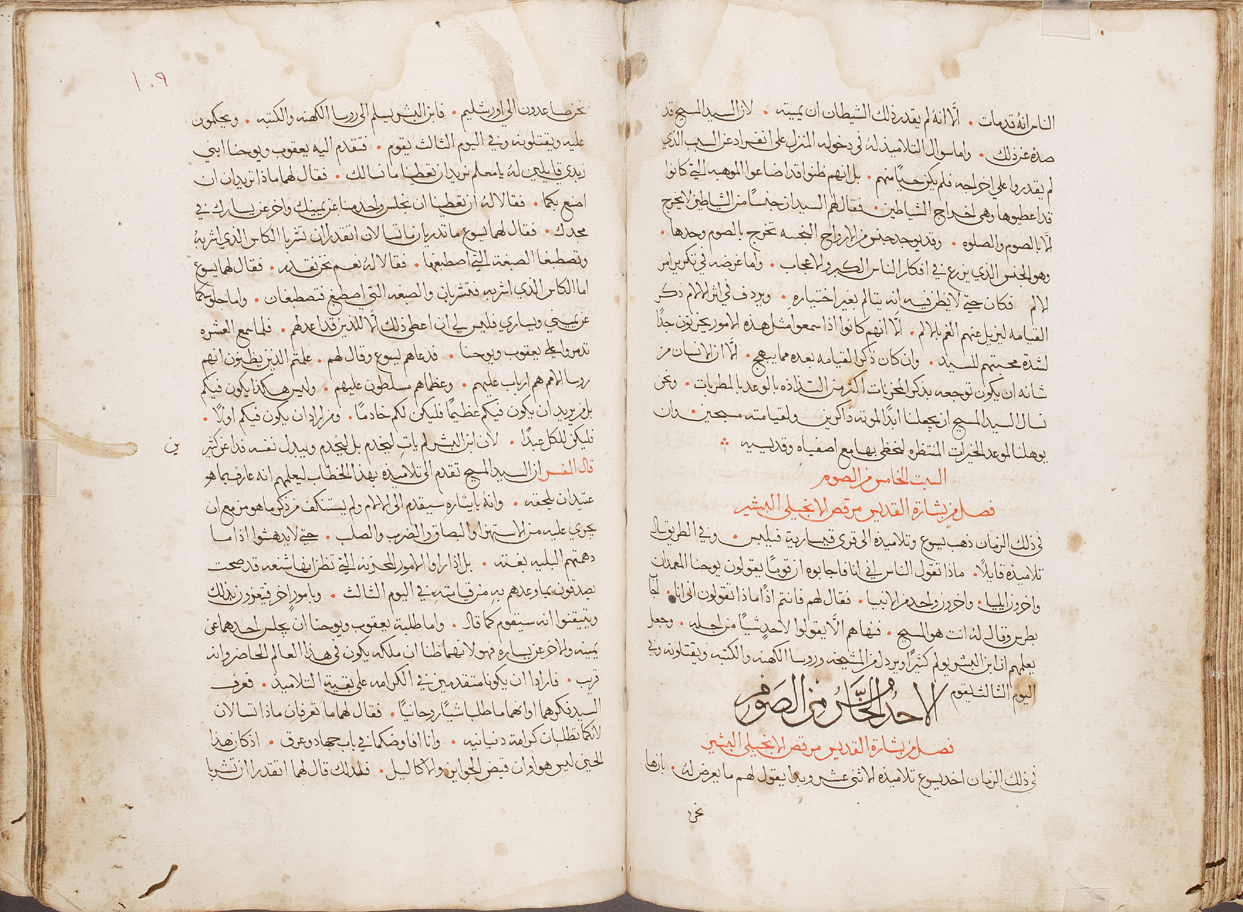 الناس انه قد مات • الا انه لم يقدر ذلك الشيطان ان يميته • لان السيد المسيح قد
صده عن ذلك • واما سوال التلاميذ له في دخوله المنزل على انفراد عن السبب الذي
لم يقدروا على اخراجه فلم يكن خبثا منهم • بل انهم ظنوا قد اضاعوا الموهبه التي كانوا
قد اعطيوها وهي اخراج الشياطين • فقال لهم السيد ان جنسا من الشياطين لا يخرج
الا بالصوم والصلوه • وقد يوجد جنس من الارواح النجسه تخرج بالصوم وحدها •
وهو الجنس الذي يزرع في افكار الناس الكبر والاعجاب • واما غرضه في تكرير امر
الالم فكان حتي لا يظن فيه انه يتالم بغير اختياره • ويردف في اثر الالام ذكر
القيامه ليزيل عنهم الغم بالالم • الا انهم كانوا اذا سمعوا مثل هذه الامور يحزنون جدا
لشدة محبتهم للسيد • وان كان ذكر القيامه بعده مما يبهج • الا ان الانسان من
شانه ان يكون توجعه بذكر المحزنات اكثر من التذاذه بالوعد بالمطربات • ونحن
نسال السيد المسيح ان يجعلنا ابدا لموته ذاكرين ولقيامته مسبحين • وان
يوهلنا لموعد الخيرات المنتظره لنحظى بها مع اصفياه وقديسيه
السبت الخامس من الصوم
فصل من بشارة القديس مرقص الانجيلي البشير
في ذلك الزمان ذهب يسوع وتلاميذه الى قرى قيسارية فيلبس • وفي الطريق سال
تلاميذه قايلا • ماذا تقول الناس اني انا فاجابوه ان قوما يقولون يوحنا المعمدان
واخرون ايليا • واخرون واحد من الانبيا • فقال لهم فانتم اذا ماذا تقولون اني انا • اجاب
بطرس وقال له انت هو المسيح • فنهاهم الا يقولوا لاحد شيا من اجله • وجعل
يعلمهم ان ابن البشر يولم كثيرا ويرذل من المشيخه وروسا الكهنه والكتبه ويقتلونه وفي
اليوم الثالث يقوم
الاحد الخامس من الصوم
فصل من بشارة القديس مرقص الانجيلي البشير
في ذلك الزمان اخد يسوع تلاميذه الاثنى عشر وبدا يقول لهم ما يعرض له • باننا ها
نحن
١٠٩
نحن صاعدون الى اورشليم • فابن البشر يسلم الى روسا الكهنه والكتبه • ويحكمون
عليه ويقتلونه وفي اليوم الثالث يقوم • فتقدم اليه يعقوب ويوحنا ابني
زبدي قايلين له يا معلم نريد ان تعطينا ما نسالك • فقال لهما ماذا تريدان ان
اصنع بكما • فقالا له ان تعطينا ان يجلس واحد منا عن يمينك واخر عن يسارك في
مجدك • فقال لهما يسوع ما تدريان ما تسالان اتقدران ان تشربا الكاس الذي اشربه
وتصطبغا الصبغه التي اصطبغها • فقالا له نعم نحن نقدر • فقال لهما يسوع
اما الكاس الذي اشربه فتشربان والصبغه التي اصطبغ فتصطبغان • واما جلوسكما
عن يميني ويساري فليس لي ان اعطى ذلك الا للذين قد اعد لهم • فلما سمع العشره
تدمروا على يعقوب ويوحنا • فدعاهم يسوع وقال لهم • علمتم الذين يظنون انهم
روسا الامم هم ارباب عليهم • وعظماهم مسلطون عليهم • وليس هكذا يكون فيكم
بل من يريد ان يكون فيكم عظيما فليكن لكم خادما • ومن اراد ان يكون فيكم اولا •
فليكن للكل عبدا • لان ابن البشر لم يات ليخدم بل ليخدم ويبدل نفسه فدا عن كثير
ين
قال المفسر ان السيد المسيح تقدم الى تلاميذه بهذا الخطاب ليعلمهم انه عارف بما هو
عتيد ان يلحقه • وانه بايثاره سيقدم الى الالام ولم يستنكف من ذكر ما هو مزمع ان
يجري عليه من الاستهزا والبصاق والضرب والصلب • حتى لا يدهشوا اذا ما
دهمتهم البليه بغته • بل اذا راوا الامور المحزنه التي تظن بها شنعه قد صحت
يصدقون بما وعدهم به من قيامته في اليوم الثالث • وبامور اخر فيعزون بذلك
ويتيقنوا انه سيقوم كما قال • واما طلبة يعقوب ويوحنا ان يجلس احدهما عن
يمينه والاخر عن يساره فهو لانهما ظنا ان ملكه يكون في هذا العالم الحاضر وانه
قرب • فارادا ان يكونا متقدمين في الكرامه على بقية التلاميذ • فعرف
السيد فكرهما واراهما ما طلبا شيا روحانيا • فقال لهما ما تعرفان ماذا تسالان
لانكما تطلبان كرامة دنيانيه • وانا افاوضكما في باب جهاد وعرق • اذ كان هذا
الحين ليس هو اوان قبض الجواين والاكاليل • فلذلك قال لهما اتقدران ان تشربا